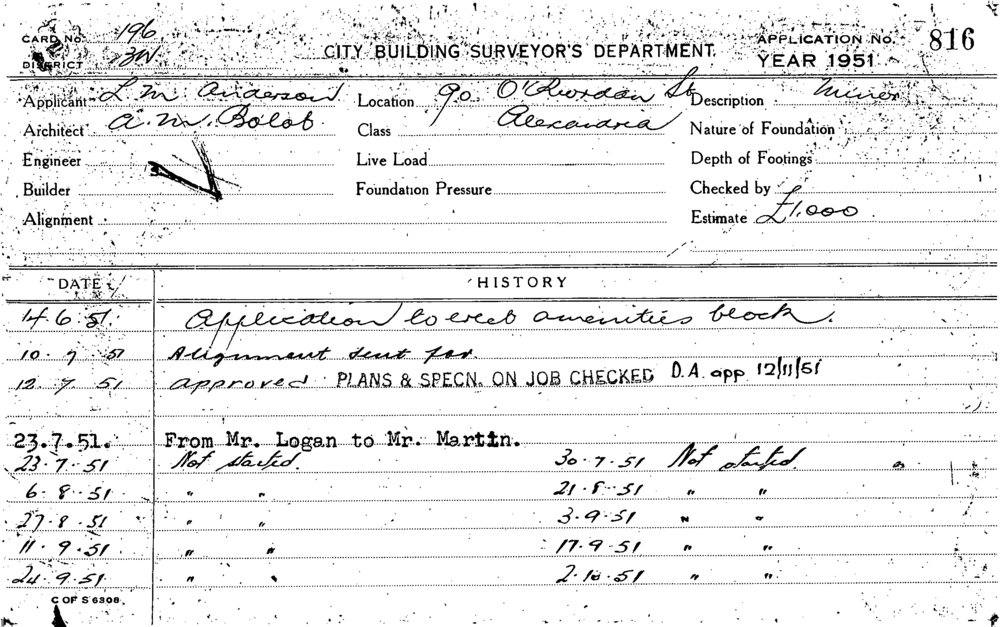 CARD No. 196
DISTRICT 3N
CITY BUILDING SURVEYOR'S DEPARTMENT.
APPLICATION No. 816
YEAR 1951
Applicant L M Anderson
Location 90 O'Riordan St
Description Minor
Architect A. M. Bolot
Class Alexandria
Nature of Foundation
Engineer
Live Load
Depth of Footings
Builder
Foundation Pressure
Checked by
Alignment
Estimate £1.000
DATE HISTORY
14 6 51. Application to erect amenities block.
10 . 7 . 51 Alignment sent for.
12 . 7 . 51 approved PLANS & SPECN. ON JOB CHECKED D.A. app 12/11/51
23.7.51. From Mr. Logan to Mr. Martin.
23 . 7 . 51 Not started. 30 . 7 . 51 Not started.
6 . 8 . 51 " " 21 . 8 . 51 " "
27 . 8 . 51 " " 3 . 9 . 51 " "
11 . 9 . 51 " " 17 . 9 . 51 " "
24 . 9 . 51 " " 2 . 10 . 51 " "
C OF S 6308.